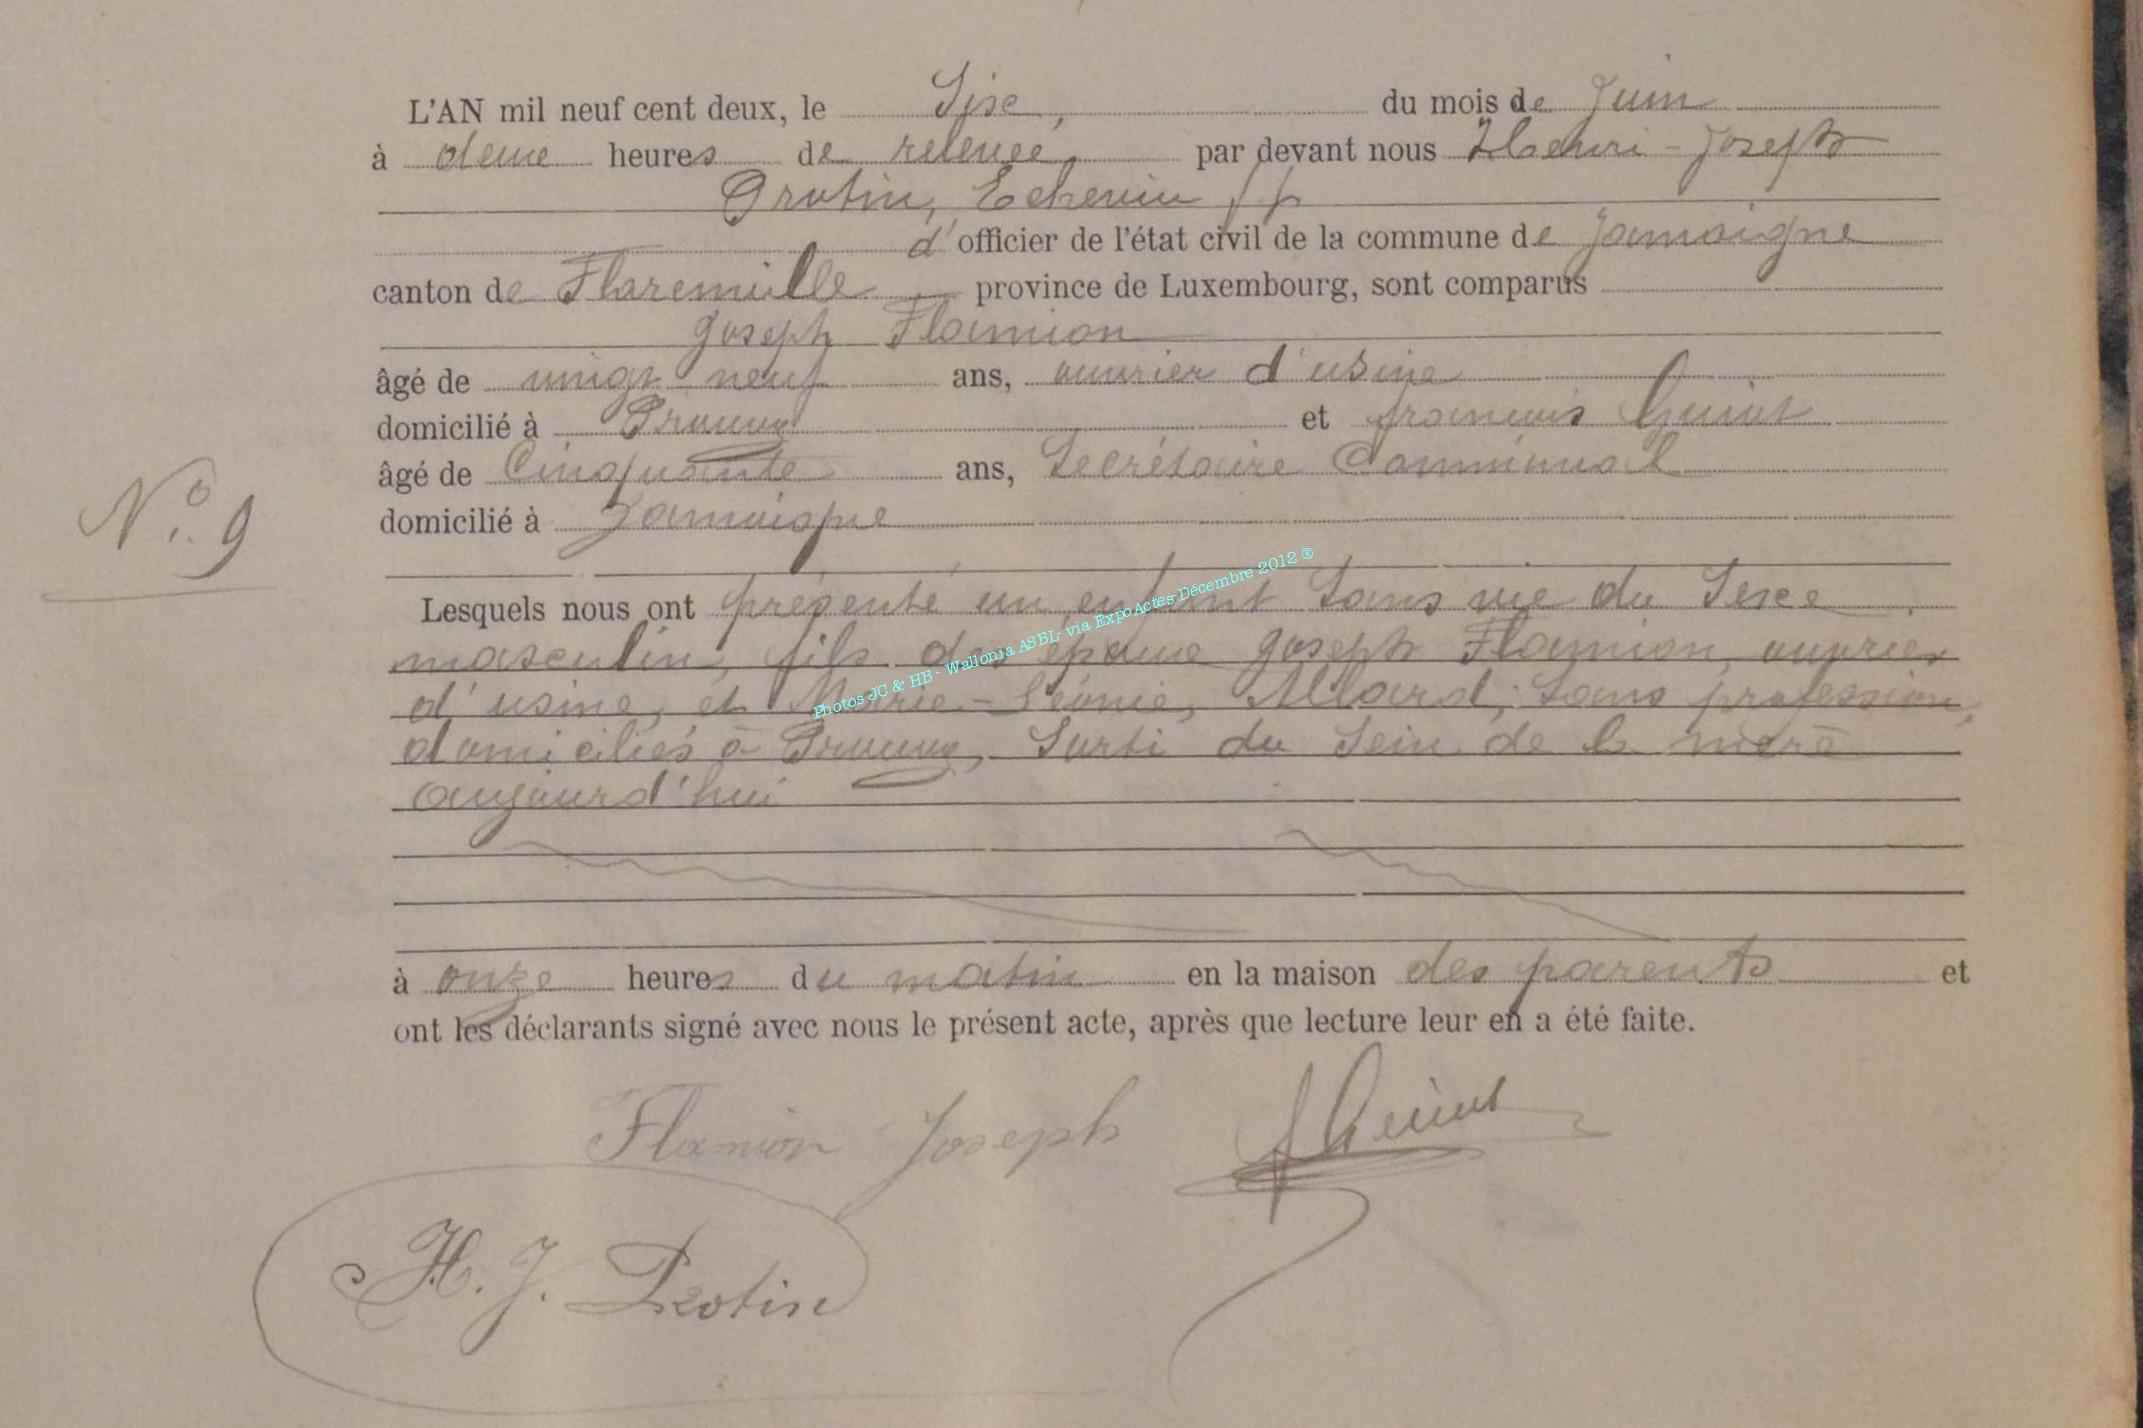 L'AN mil neuf cent deux, le Six, du mois de Juin
à deux heures de relevée, par devant nous Henri-Joseph
Protin, Echevin ff
d'officier de l'état civil de la commune de Jamoigne
canton de Florenville province de Luxembourg, sont comparus
Joseph Flamion
âgé de vingt-neuf ans, ouvrier d'usine
domicilié à Prouvy et François Guiot
âgé de Cinquante ans, Secrétaire Communal
domicilié à Jamoigne
N° 9
Lesquels nous ont présenté un enfant Sans vie du Sexe
masculin, fils des époux Joseph Flamion, ouvrier
d'usine, et Marie-Léonie, Allard, Sans profession,
domiciliés à Prouvy, Sorti du Sein de la mère
aujourd'hui
à onze heures du matin en la maison des parents et
ont les déclarants signé avec nous le présent acte, après que lecture leur en a été faite.
Flamion Joseph
H. J. Protin
Photos JC & HB - Wallonia ASBL via ExpoActes Décembre 2012 ®